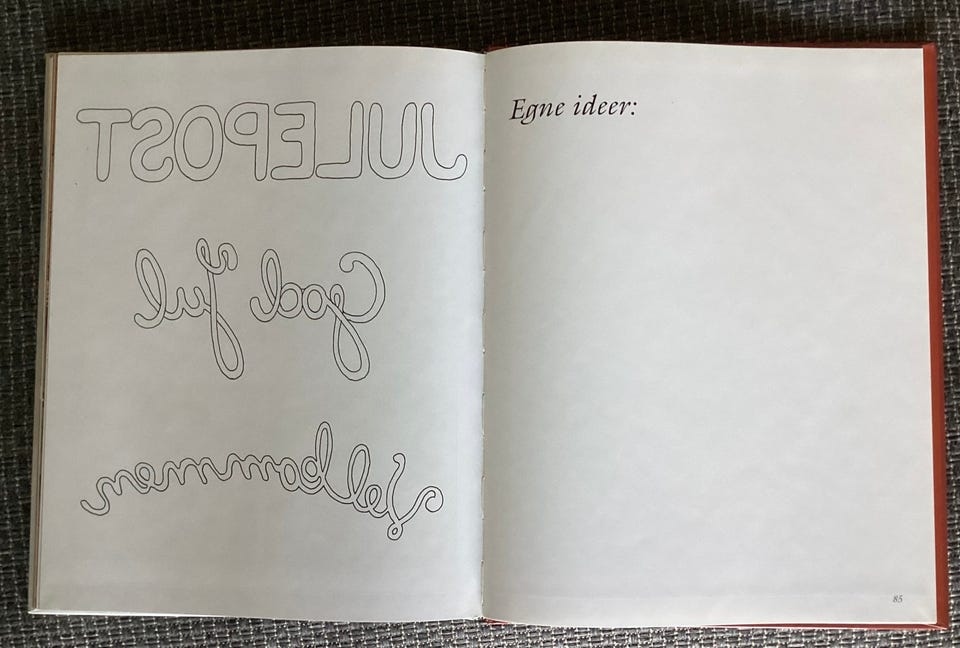 JULEPOST
God Jul
Velkommen
Egne ideer:
85